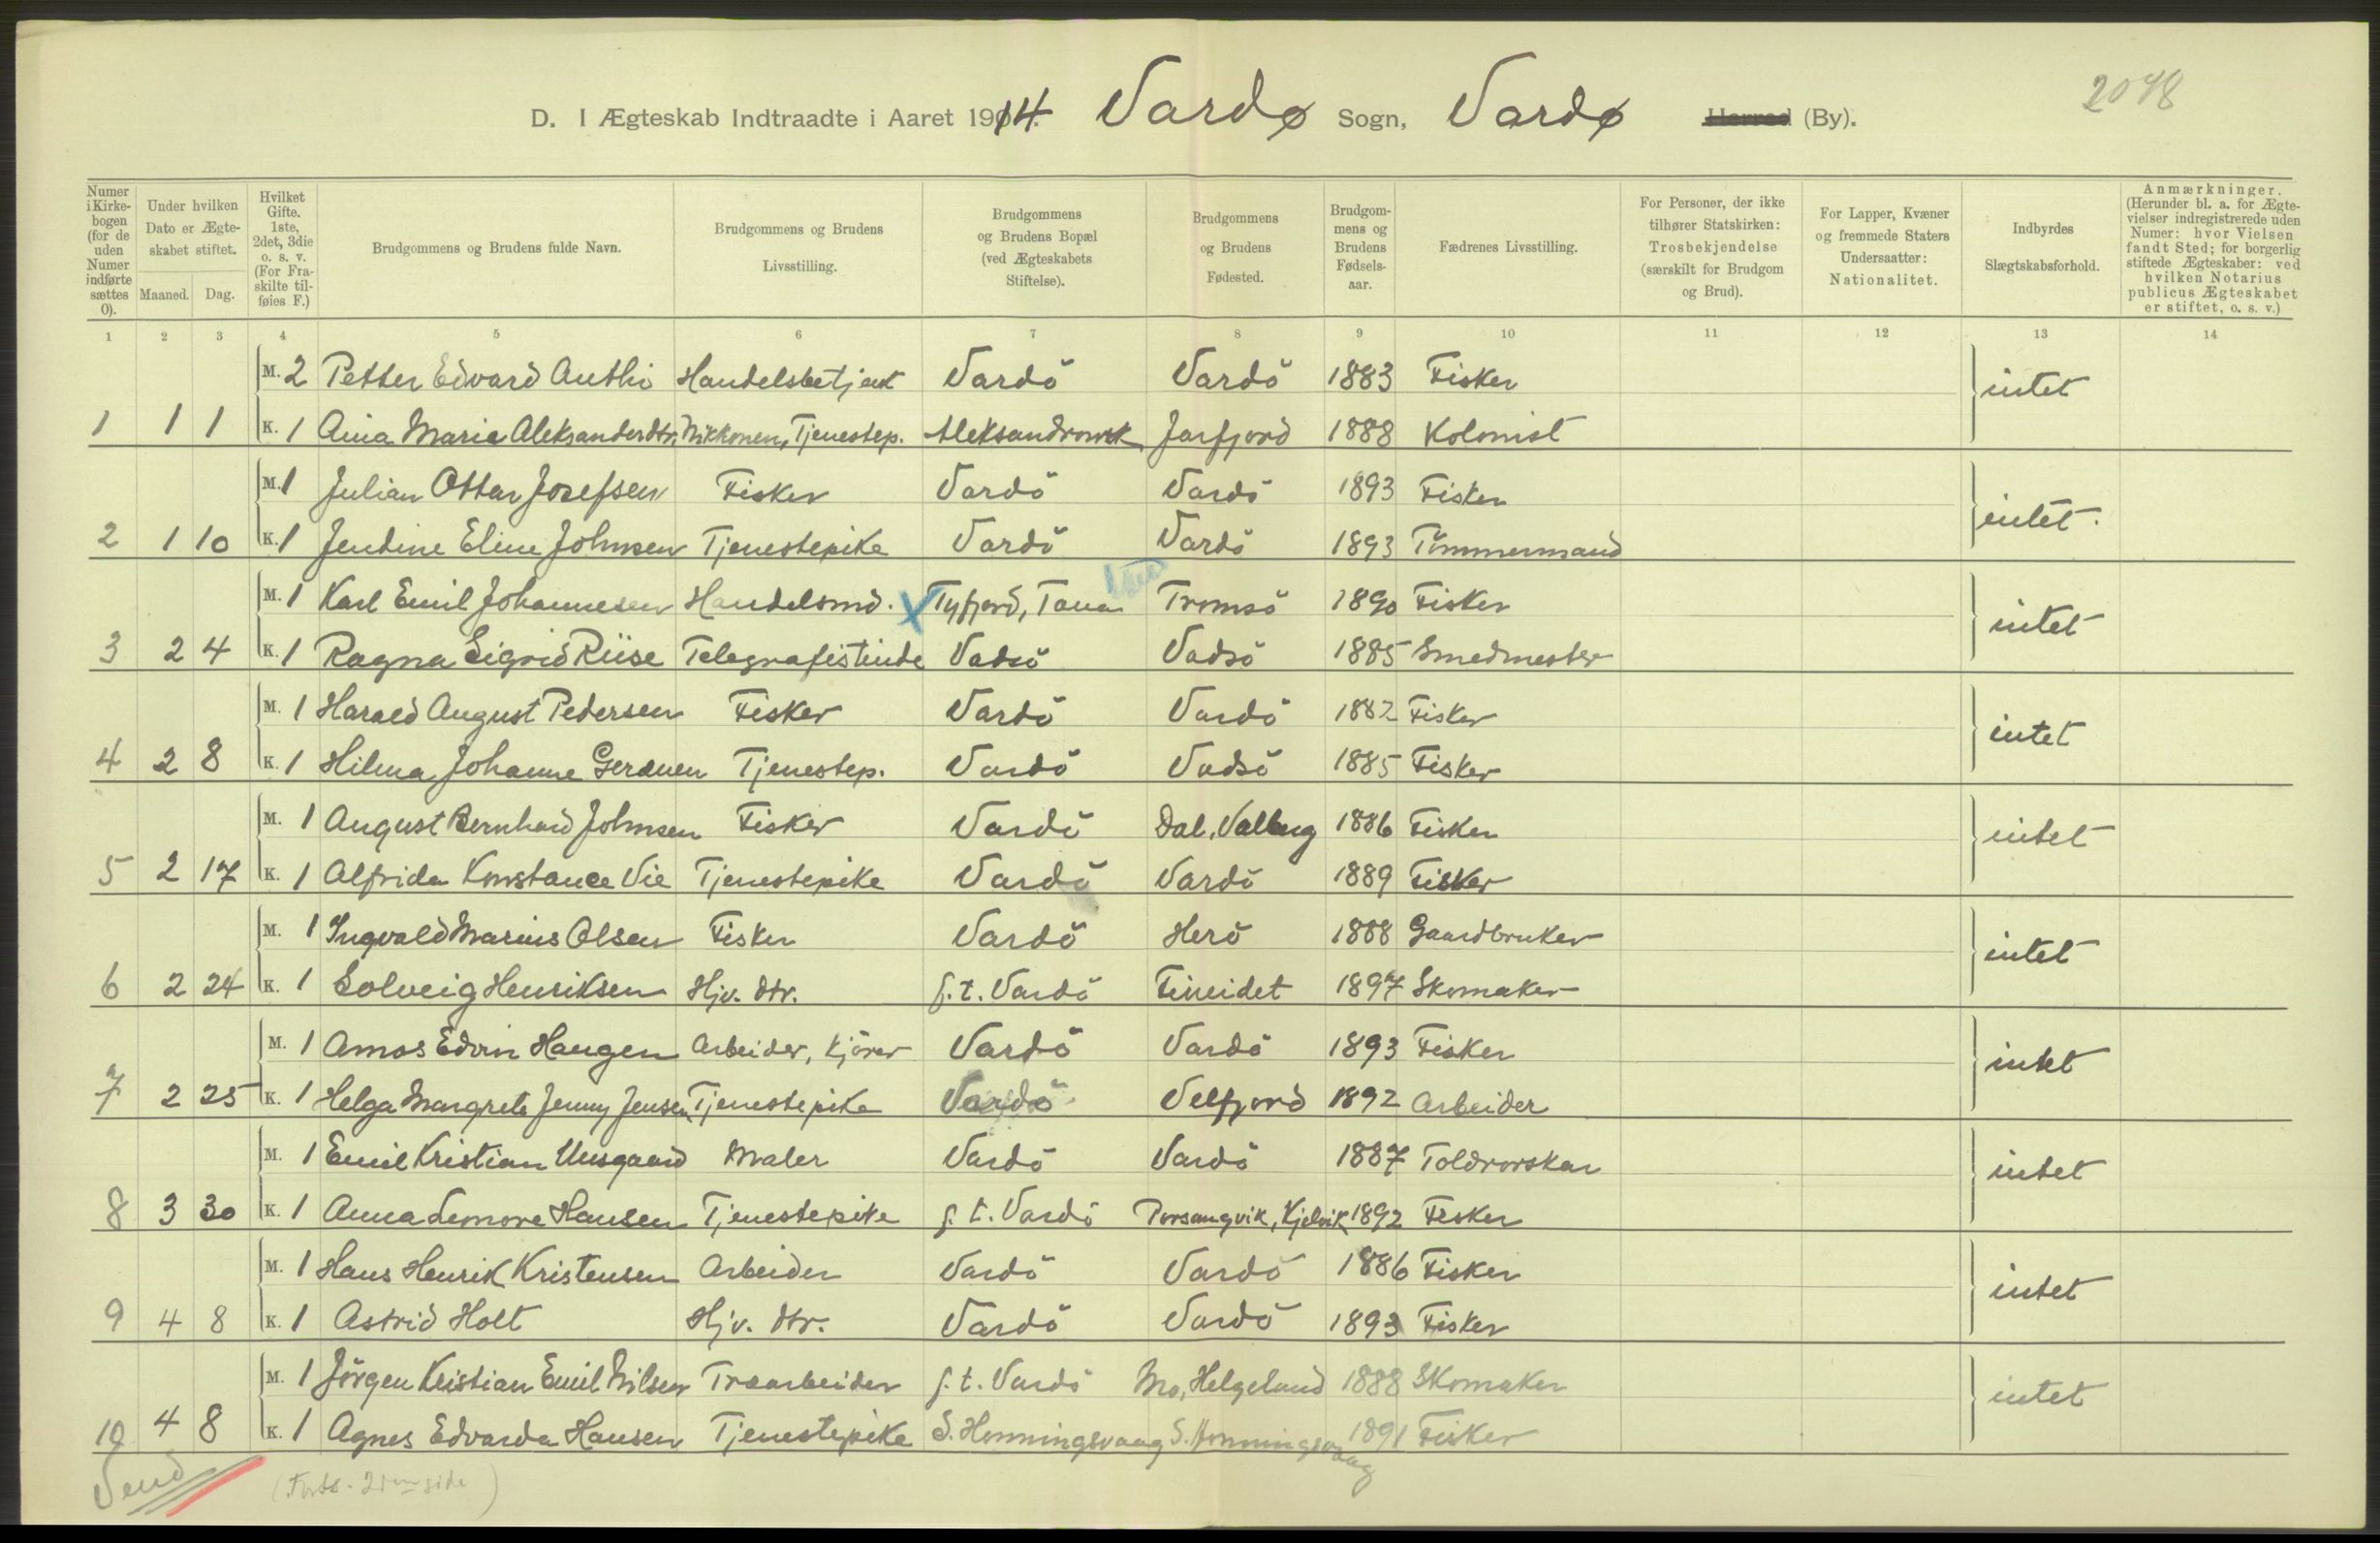 2048
D. I Ægteskab Indtraadte i Aaret 1914. Vardø Sogn, Vardø Herred (By).
Numer i Kirke-bogen (for de uden Numer indførte sættes 0).
Under hvilken Dato er Ægte-skabet stiftet.
Maaned. Dag.
Hvilket Gifte. 1ste, 2det, 3die o. s. v. (For Fra-skilte til-føies F.)
Brudgommens og Brudens fulde Navn.
Brudgommens og Brudens Livsstilling.
Brudgommens og Brudens Bopæl (ved Ægteskabets Stiftelse).
Brudgommens og Brudens Fødested.
Brudgom-mens og Brudens Fødsels-aar.
Fædrenes Livsstilling.
For Personer, der ikke tilhører Statskirken: Trosbekjendelse (særskilt for Brudgom og Brud).
For Lapper, Kvæner og fremmede Staters Undersaatter: Nationalitet.
Indbyrdes Slægtskabsforhold.
Anmærkninger. (Herunder bl. a. for Ægte-vielser indregistrerede uden Numer: hvor Vielsen fandt Sted; for borgerlig stiftede Ægteskaber: ved hvilken Notarius publicus Ægteskabet er stiftet, o. s. v.)
1 2 3 4 5 6 7 8 9 10 11 12 13 14
M. 2 Petter Edvard Anthi Handelsbetjent Vardö Vardö 1883 Fisker intet
1 1 1 K. 1 Aina Marie Aleksanderdtr. Nikkonen, Tjenestep. Aleksandrowsk Jarfjord 1888 Kolonist
M. 1 Julian Ottar Josefsen Fisker Vardö Vardö 1893 Fisker intet.
2 1 10 K. 1 Jendine Eline Johnsen Tjenestepike Vardö Vardö 1893 Tömmermand
M. 1 Karl Emil Johannesen Handelsmd. X Tyfjord, Tana Tromsö 1890 Fisker intet
3 2 4 K. 1 Ragna Sigrid Riise Telegrafistinde Vadsö Vadsö 1885 Smedmester
M. 1 Harald August Pedersen Fisker Vardö Vardö 1882 Fisker intet
4 2 8 K. 1 Hilma Johanne Tjenestep. Vardö Vadsö 1885 Fisker
M. 1 August Bernhard Johnsen Fisker Vardö Dal, Valberg 1886 Fisker intet
5 2 17 K. 1 Alfrida Konstance Vie Tjenestepike Vardö Vardö 1889 Fisker
M. 1 Ingvald Marius Olsen Fisker Vardö Herö 1888 Gaardbruker intet
6 2 24 K. 1 Solveig Henriksen Hjv. dtr. f. t. Vardö Fineidet 1897 Skomaker
M. 1 Amos Edvin Haugen Arbeider, kjörer Vardö Vardö 1893 Fisker intet
7 2 25 K. 1 Helga Margrete Jenny Jensen Tjenestepike Vardö Velfjord 1892 Arbeider
M. 1 Emil Kristian Unsgaard Maler Vardö Vardö 1887 Toldrorskar intet
8 3 30 K. 1 Anna Lenore Hansen Tjenestepike f. t. Vardö Porsangvik, Kjelvik 1892 Fisker
M. 1 Hans Henrik Kristensen Arbeider Vardö Vardö 1886 Fisker intet
9 4 8 K. 1 Astrid Holt Hjv. dtr. Vardö Vardö 1893 Fisker
M. 1 Jörgen Kristian Emil Nilsen Træarbeider f. t. Vardö Mo, Helgeland 1888 Skomaker intet
10 4 8 K. 1 Agnes Edvarda Hansen Tjenestepike S. Honningsvaag S. Honningsvaag 1891 Fisker
Vend (Forts. 2den side)